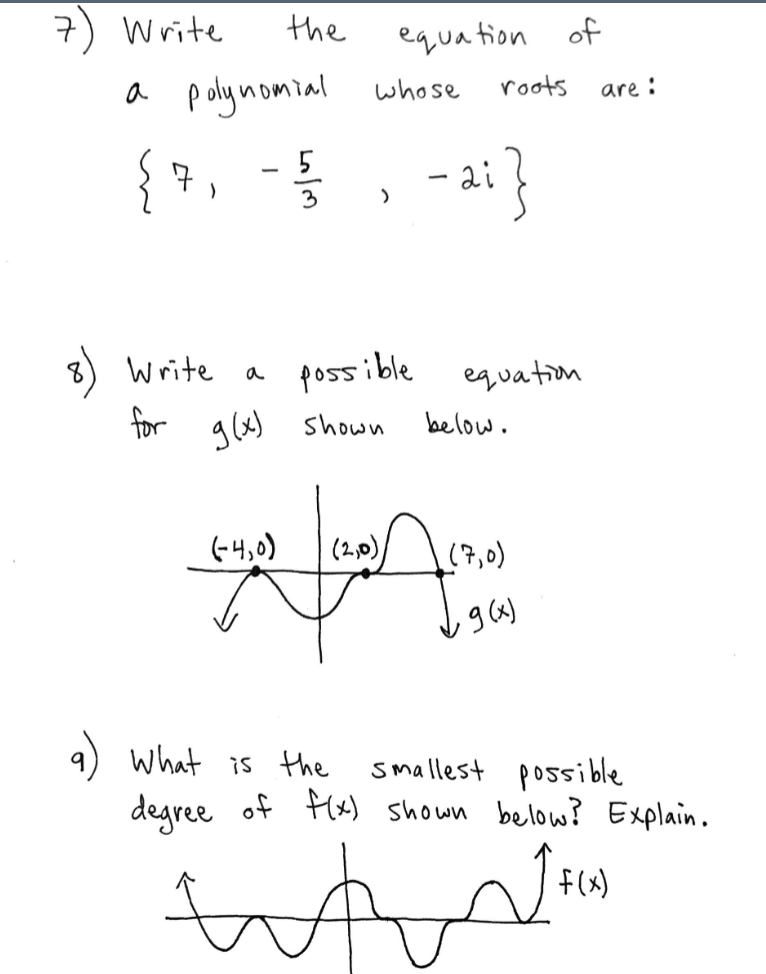 7) Write the equation of
a polynomial whose roots are:
{ 7, - 5/3 , - 2i }
8) Write a possible equation
for g(x) shown below.
(-4,0) (2,0) (7,0)
g(x)
9) What is the smallest possible
degree of f(x) shown below? Explain.
f(x)